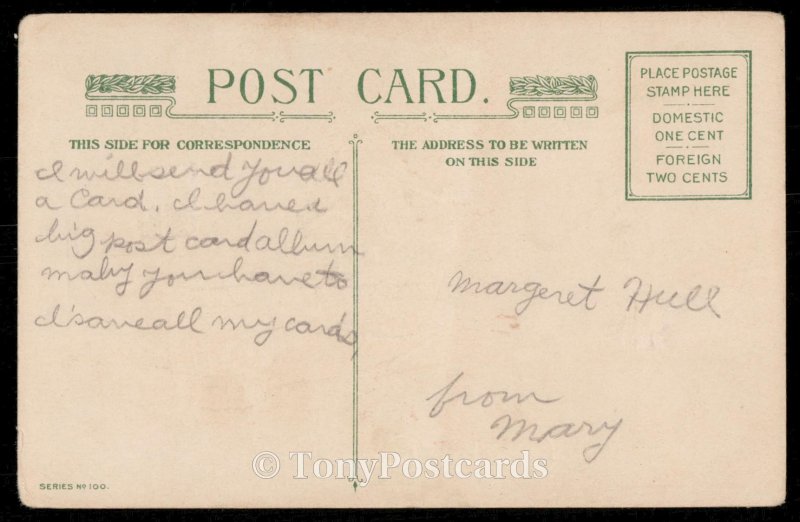 POST CARD.
PLACE POSTAGE
STAMP HERE
DOMESTIC
ONE CENT
FOREIGN
TWO CENTS
THIS SIDE FOR CORRESPONDENCE
THE ADDRESS TO BE WRITTEN
ON THIS SIDE
I will send you all
a Card. I have a
big post card album
maby you have to
I save all my cards,
Margeret Hull
from
Mary
SERIES No 100.
© TonyPostcards